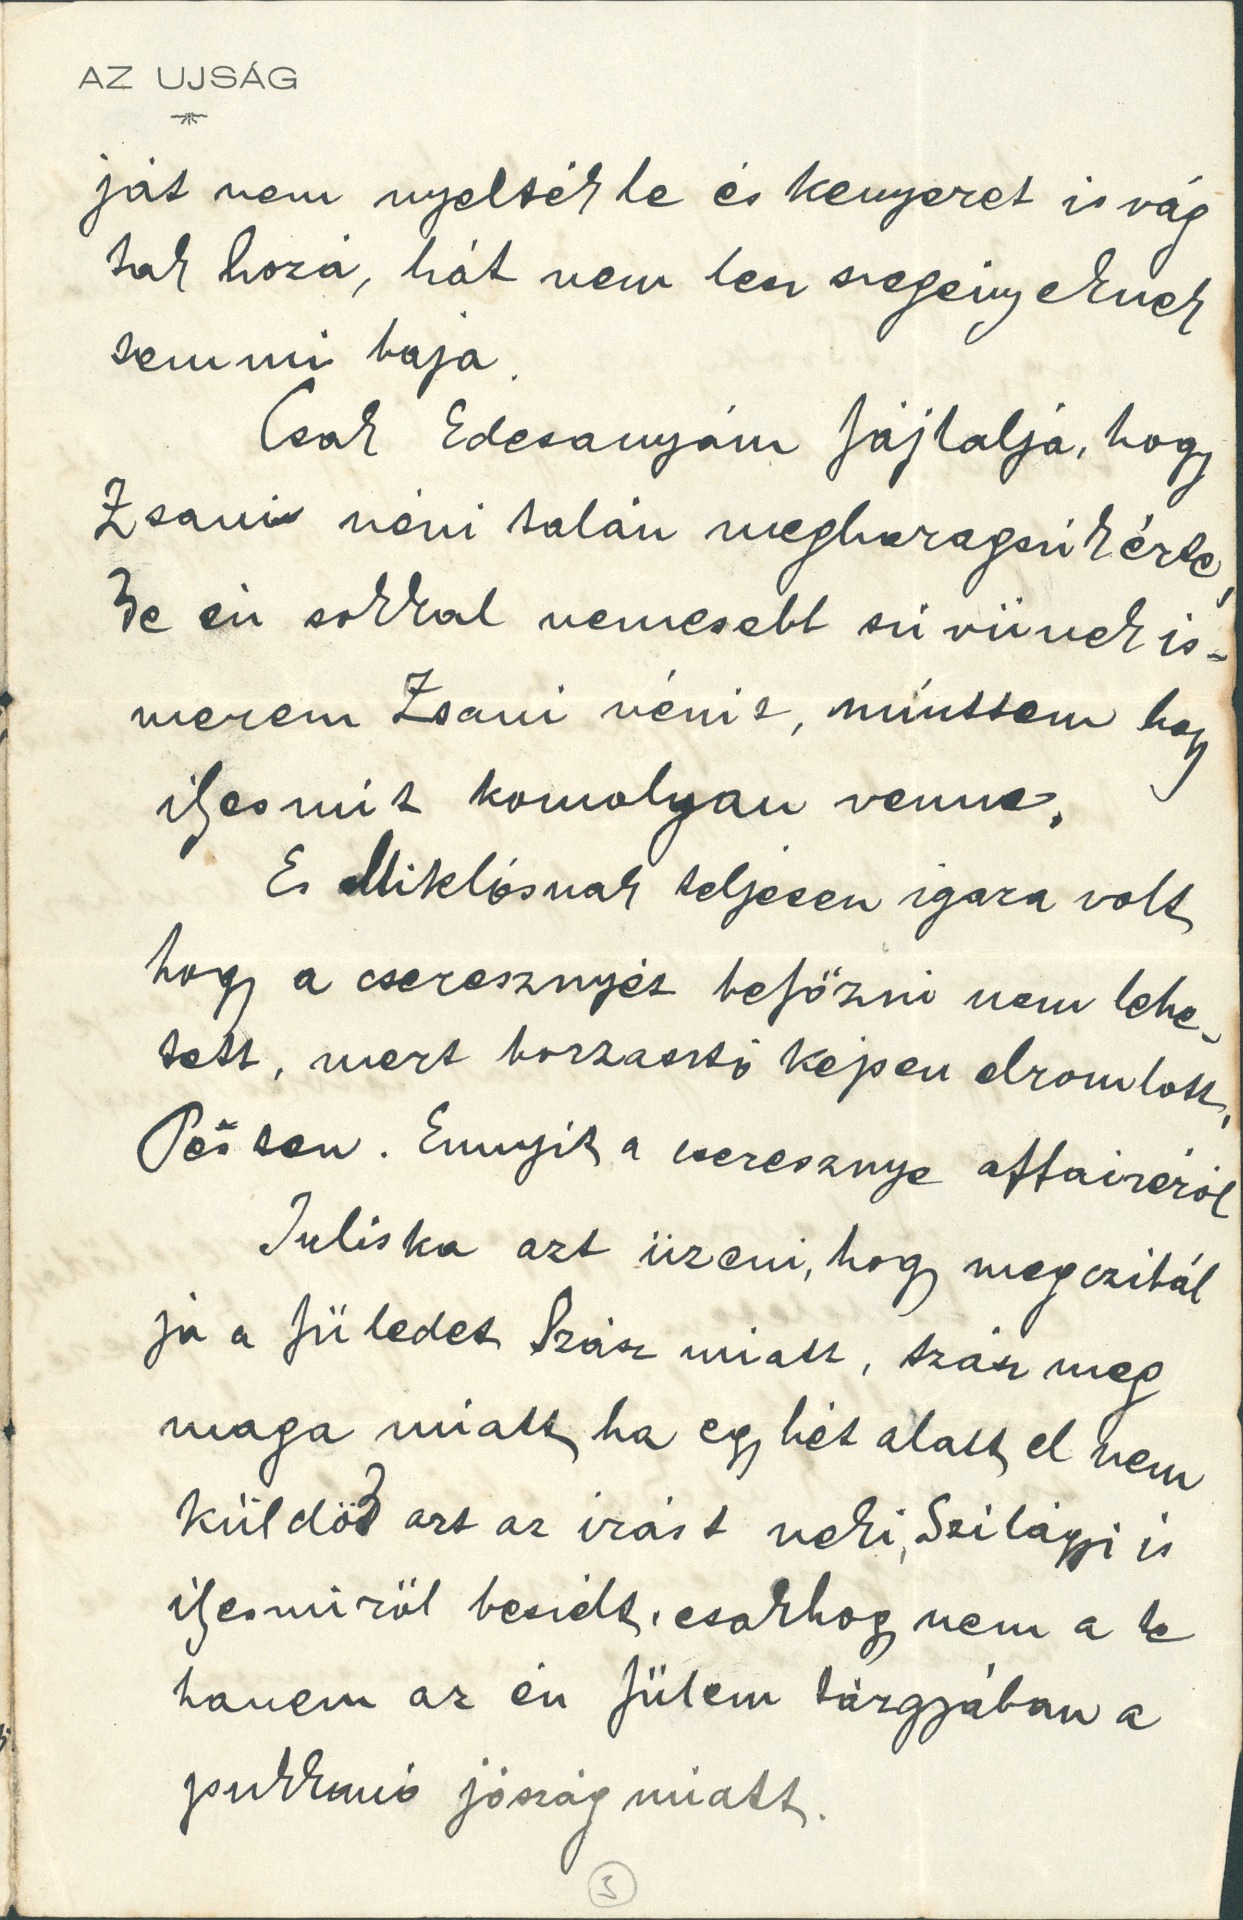 AZ UJSÁG
ját nem nyelték le és kenyeret is vág
tak hozá, hát nem lesz szegényeknek
semmi baja.
Csak Édesanyám fájlalja, hogy
Zsani néni talán megharagszik érte,
De én sokkal nemesebb szívünek is-
merem Zsani nénit, míntsem hogy
ilyesmit komolyan venne.
És Miklósnak teljesen igaza volt
hogy a cseresznyét befőzni nem lehe-
tett, mert borzasztó képen elromlott,
Pesten. Ennyit a cseresznye affairéről
Juliska azt üzeni, hogy megczibál
ja a füledet Szász miatt, Szász meg
maga miatt, ha egy hét alatt el nem
küldöd azt az irást neki, Szilágyi is
ilyesmiröl beszélt, csakhogy nem a te
hanem az én fülem tárgyában a
jószág miatt.
3